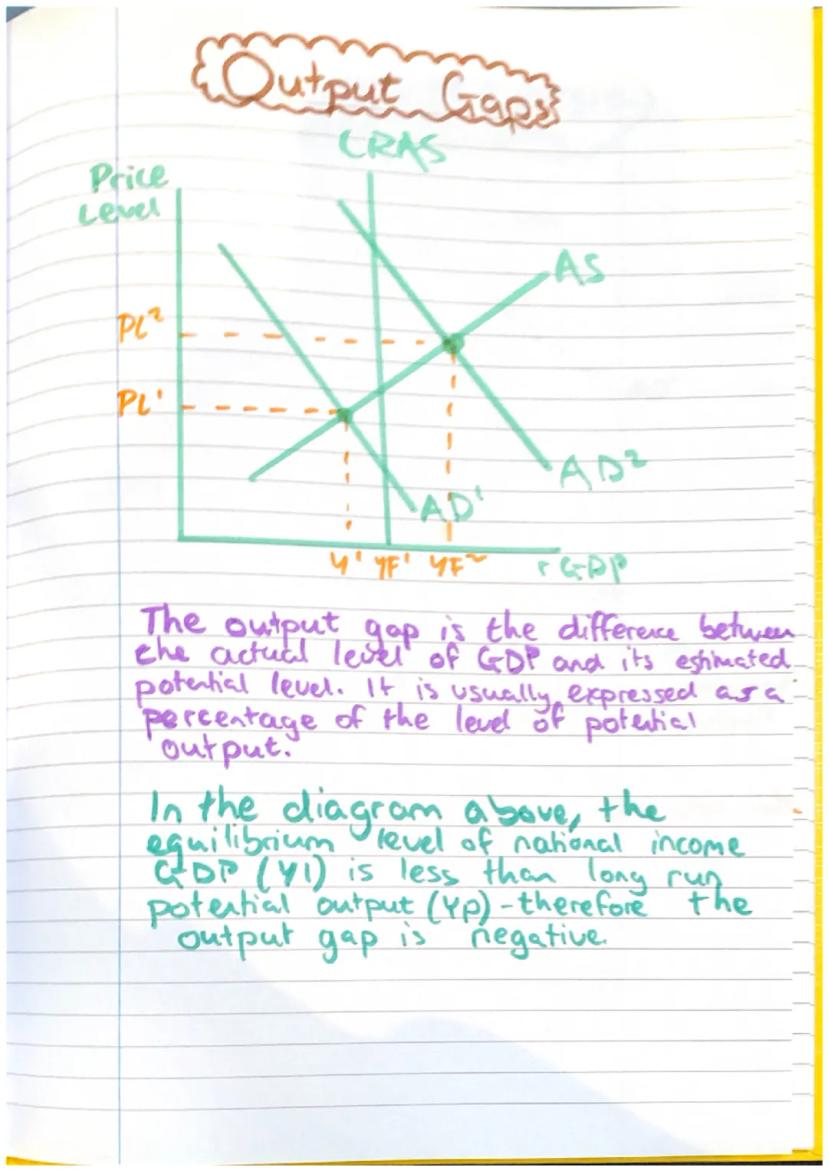 Output Gaps
LRAS
Price
Level
AS
PL²
PL¹
AD²
AD¹
Y¹ YF¹ YF² rGDP
The output gap is the difference between
the actual level of GDP and its estimated
potential level. It is usually expressed as a
percentage of the level of potential
output.
In the diagram above, the
equilibrium level of national income
GDP (Y1) is less than long run
potential output (Yp) - therefore the
output gap is negative.